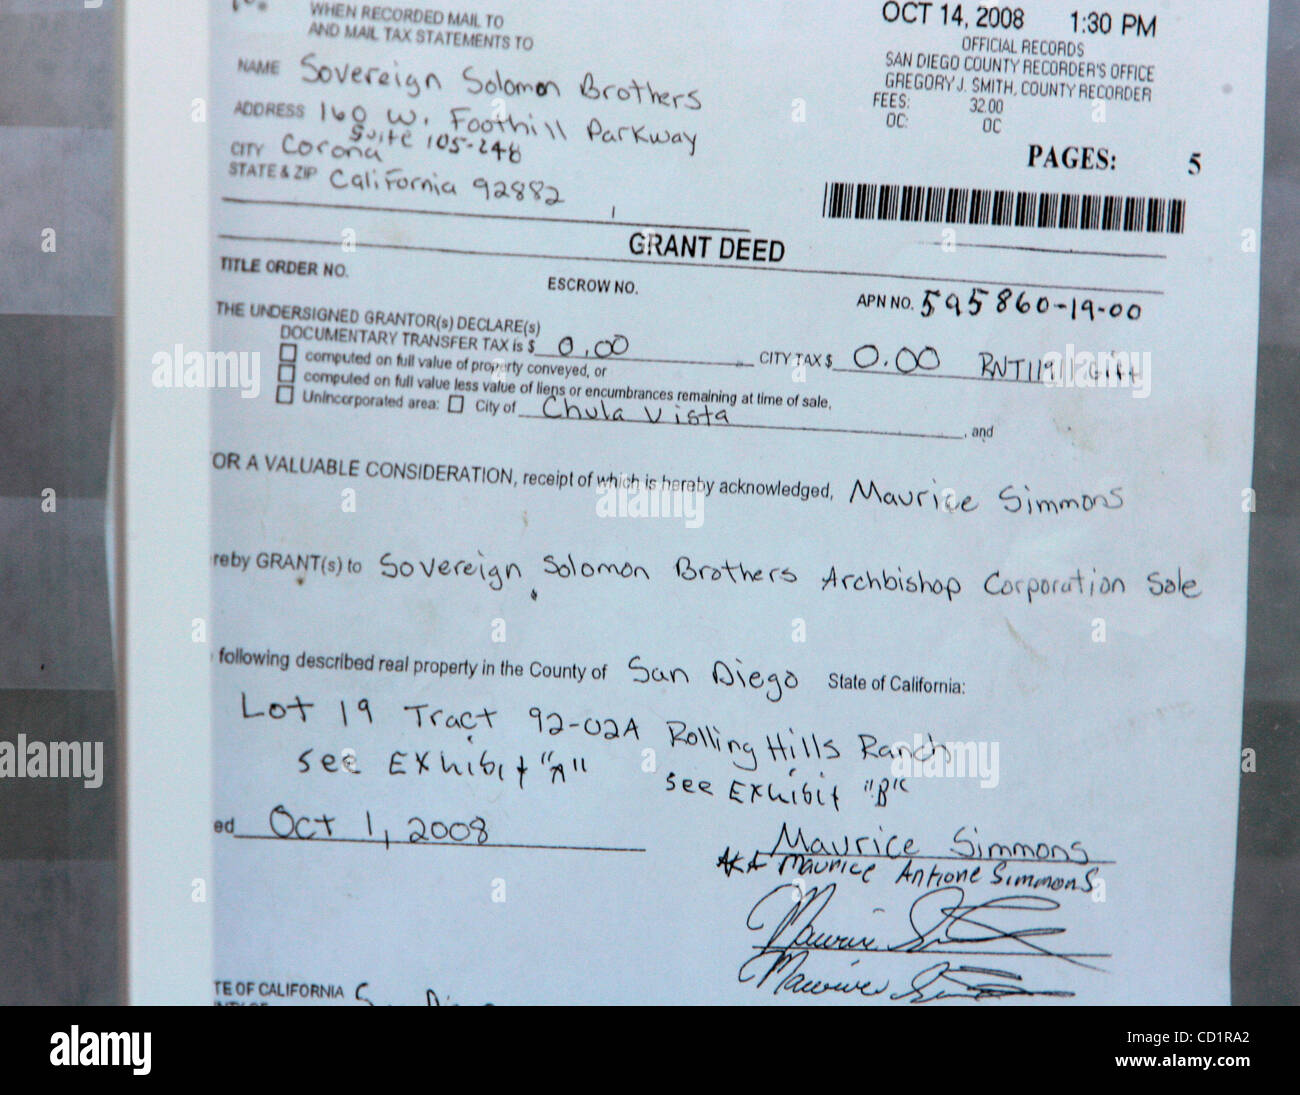 WHEN RECORDED MAIL TO
AND MAIL TAX STATEMENTS TO
NAME Sovereign Solomon Brothers
ADDRESS 160 W. Foothill Parkway
Suite 105-248
CITY Corona
STATE & ZIP California 92882
OCT 14, 2008 1:30 PM
OFFICIAL RECORDS
SAN DIEGO COUNTY RECORDER'S OFFICE
GREGORY J. SMITH, COUNTY RECORDER
FEES: 32.00
OC: OC
PAGES: 5
GRANT DEED
TITLE ORDER NO. ESCROW NO. APN NO. 595860-19-00
THE UNDERSIGNED GRANTOR(s) DECLARE(s)
DOCUMENTARY TRANSFER TAX is $ 0.00 CITY TAX $ 0.00 RNT11911 Gift
computed on full value of property conveyed, or
computed on full value less value of liens or encumbrances remaining at time of sale,
Unincorporated area: City of Chula Vista , and
OR A VALUABLE CONSIDERATION, receipt of which is hereby acknowledged, Maurice Simmons
reby GRANT(s) to Sovereign Solomon Brothers Archbishop Corporation Sole
following described real property in the County of San Diego State of California:
Lot 19 Tract 92-02A Rolling Hills Ranch
see EXhibit "A" see EXhibit "B"
ed Oct 1, 2008
Maurice Simmons
AKA Maurice Antione Simmons
Maurice Simmons
Maurice Simmons
TE OF CALIFORNIA
alamy
Image ID: CD1RA2
www.alamy.com